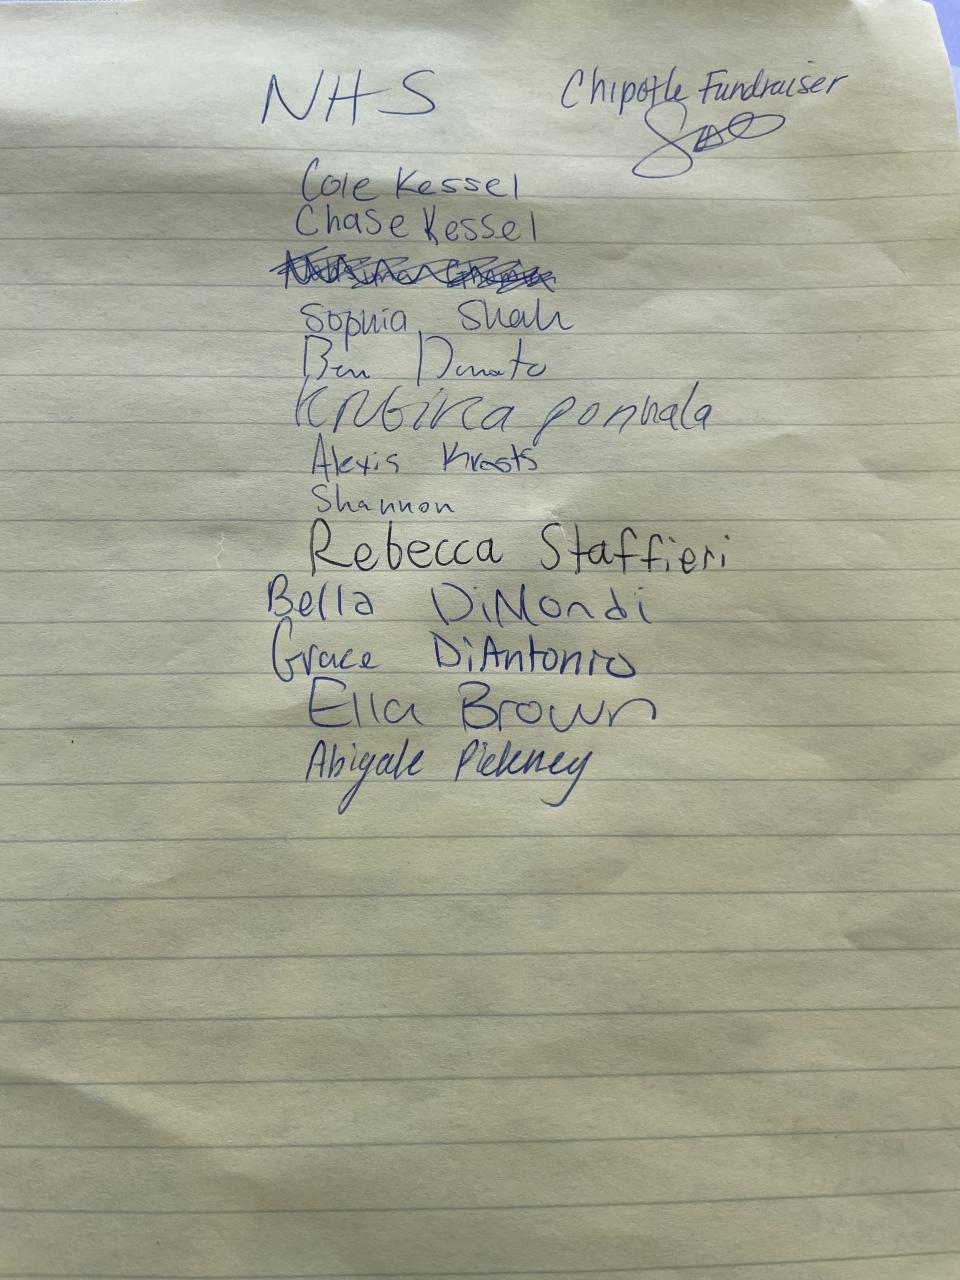 NHS Chipotle Fundraiser
Cole Kessel
Chase Kessel
Sophia Shah
Ben Donato
ponnala
Alexis
Shannon
Rebecca Staffieri
Bella DiMondi
Grace DiAntonio
Ella Brown
Abigale Pickney